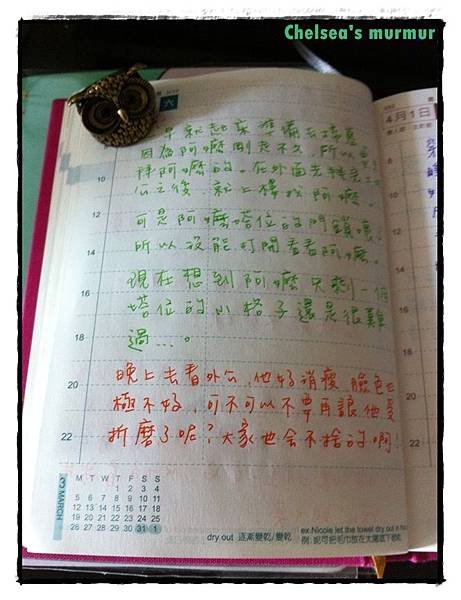 Chelsea's murmur
六
4月1日
一早就起來準備去掃墓
因為阿嬤剛走不久,所以
拜阿嬤的。在外面先拜
公之後,就上樓找阿嬤。
可是阿嬤塔位的門鎖壞
所以沒能打開看看阿嬤。
現在想到阿嬤只剩一個
塔位的小格子還是很難
過…。
晚上去看外公,他好消瘦,臉色
極不好,可不可以不要再讓他受
折磨了呢?大家也会不捨的啊!
10
12
14
16
18
20
22
8
10
3 MARCH
M T W T F S S
1 2 3 4
5 6 7 8 9 10 11
12 13 14 15 16 17 18
19 20 21 22 23 24 25
26 27 28 29 30 31 1
dry out 逐漸變乾/變乾
ex.Nicole let the towel dry out in
例:妮可把毛巾放在太陽底下